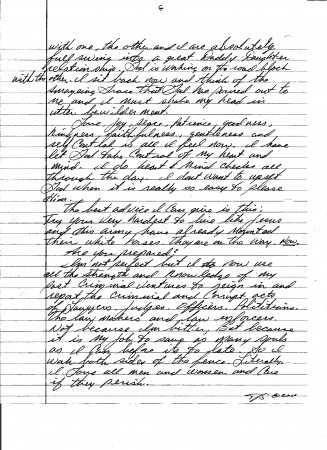 6
with one, the other and I are absolutely
full swing into a great Daddy Daughter
relationship. God is working on the road block
with the other. I sit back now and think of the
amazing Grace that God has poured out to
me and I must shake my head in
utter bewilderment.
Love, joy, peace, patience, goodness,
kindness, faithfulness, gentleness and
self control is all I feel now. I have
let God take control of my heart and
mind. I do heart & mind checks all
through the day. I don't want to upset
God when it is really so easy to please
Him.
The best advice I can give is this:
Try your very hardest to live like Jesus
and His army have already mounted
their white horses they are on the way. Now.
Are you prepared?
I'm not perfect but I do now use
all the strength and knowledge of my
past criminal ventures to reign in and
report the criminal and corrupt acts
of Lawyers, Judges, Officers, Politicians,
the law makers and law enforcers.
Not because I'm bitter, But because
it is my job to save as many souls
as I can before it's to late. So I
work both sides of the fence. Literally
I love all men and women and care
if they perish.